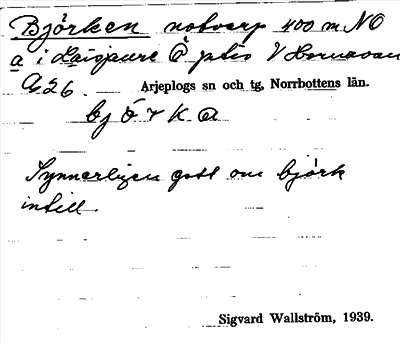 Björken notvarp 400 m NO
a i Laisjaure Ö ptio V Hornavan
G26. Arjeplogs sn och tg, Norrbottens län.
björka
Synnerligen gott om björk
intill.
Sigvard Wallström, 1939.